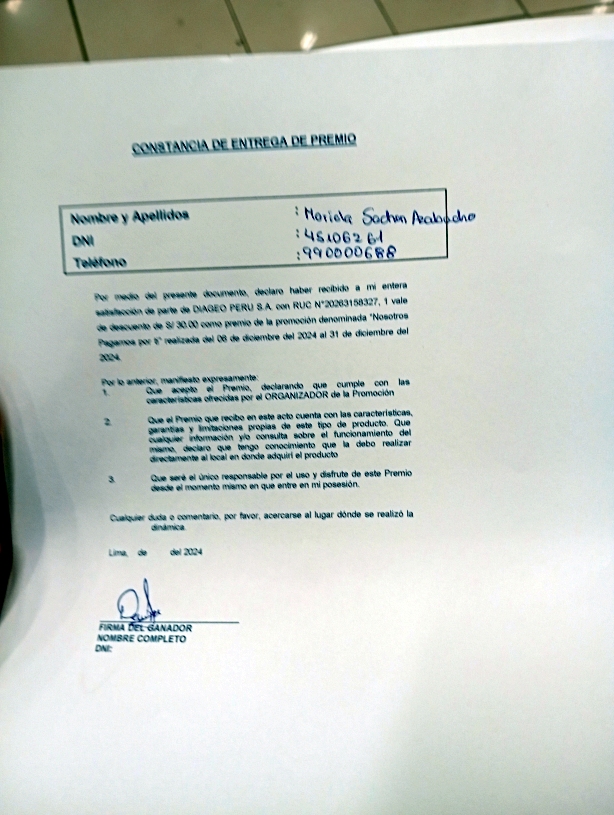 CONSTANCIA DE ENTREGA DE PREMIO
Nombre y Apellidos : Mariela
DNI : 45106261
Teléfono : 990000688
Por medio del presente documento, declaro haber recibido a mi entera
satisfacción de parte de DIAGEO PERU S.A. con RUC N°20263158327, 1 vale
de descuento de S/ 30.00 como premio de la promoción denominada "Nosotros
Pagamos por ti" realizada del 06 de diciembre del 2024 al 31 de diciembre del
2024.
Por lo anterior, manifiesto expresamente:
1. Que acepto el Premio, declarando que cumple con las
características ofrecidas por el ORGANIZADOR de la Promoción
2. Que el Premio que recibo en este acto cuenta con las características,
garantías y limitaciones propias de este tipo de producto. Que
cualquier información y/o consulta sobre el funcionamiento del
mismo, declaro que tengo conocimiento que la debo realizar
directamente al local en donde adquirí el producto
3. Que seré el único responsable por el uso y disfrute de este Premio
desde el momento mismo en que entre en mi posesión.
Cualquier duda o comentario, por favor, acercarse al lugar dónde se realizó la
dinámica.
Lima, de del 2024
FIRMA DEL GANADOR
NOMBRE COMPLETO
DNI: